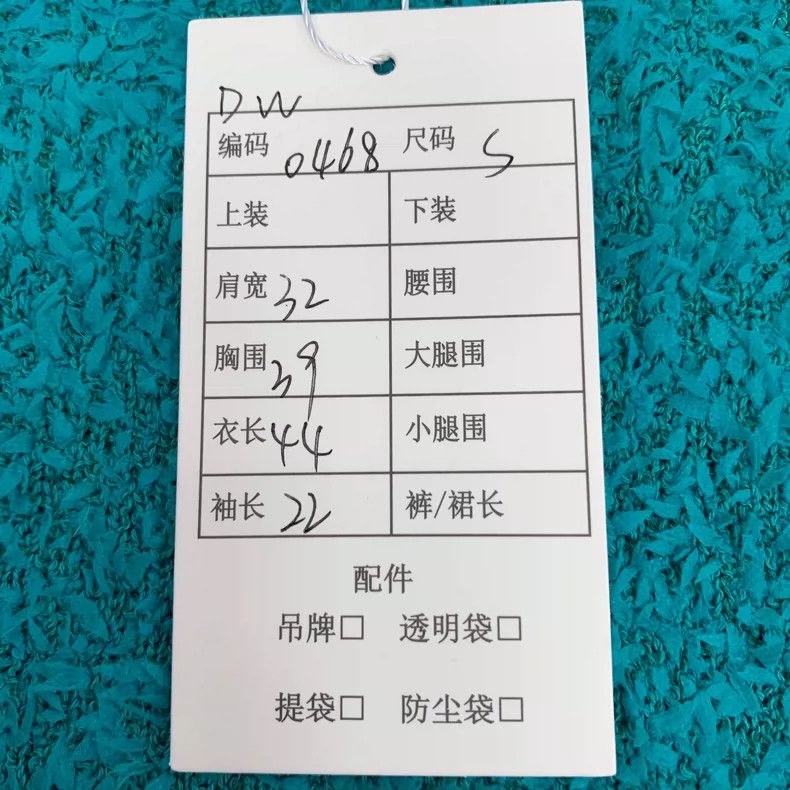 DW
编码 0468 尺码 S
上装 下装
肩宽 32 腰围
胸围 39 大腿围
衣长 44 小腿围
袖长 22 裤/裙长
配件
吊牌□ 透明袋□
提袋□ 防尘袋□